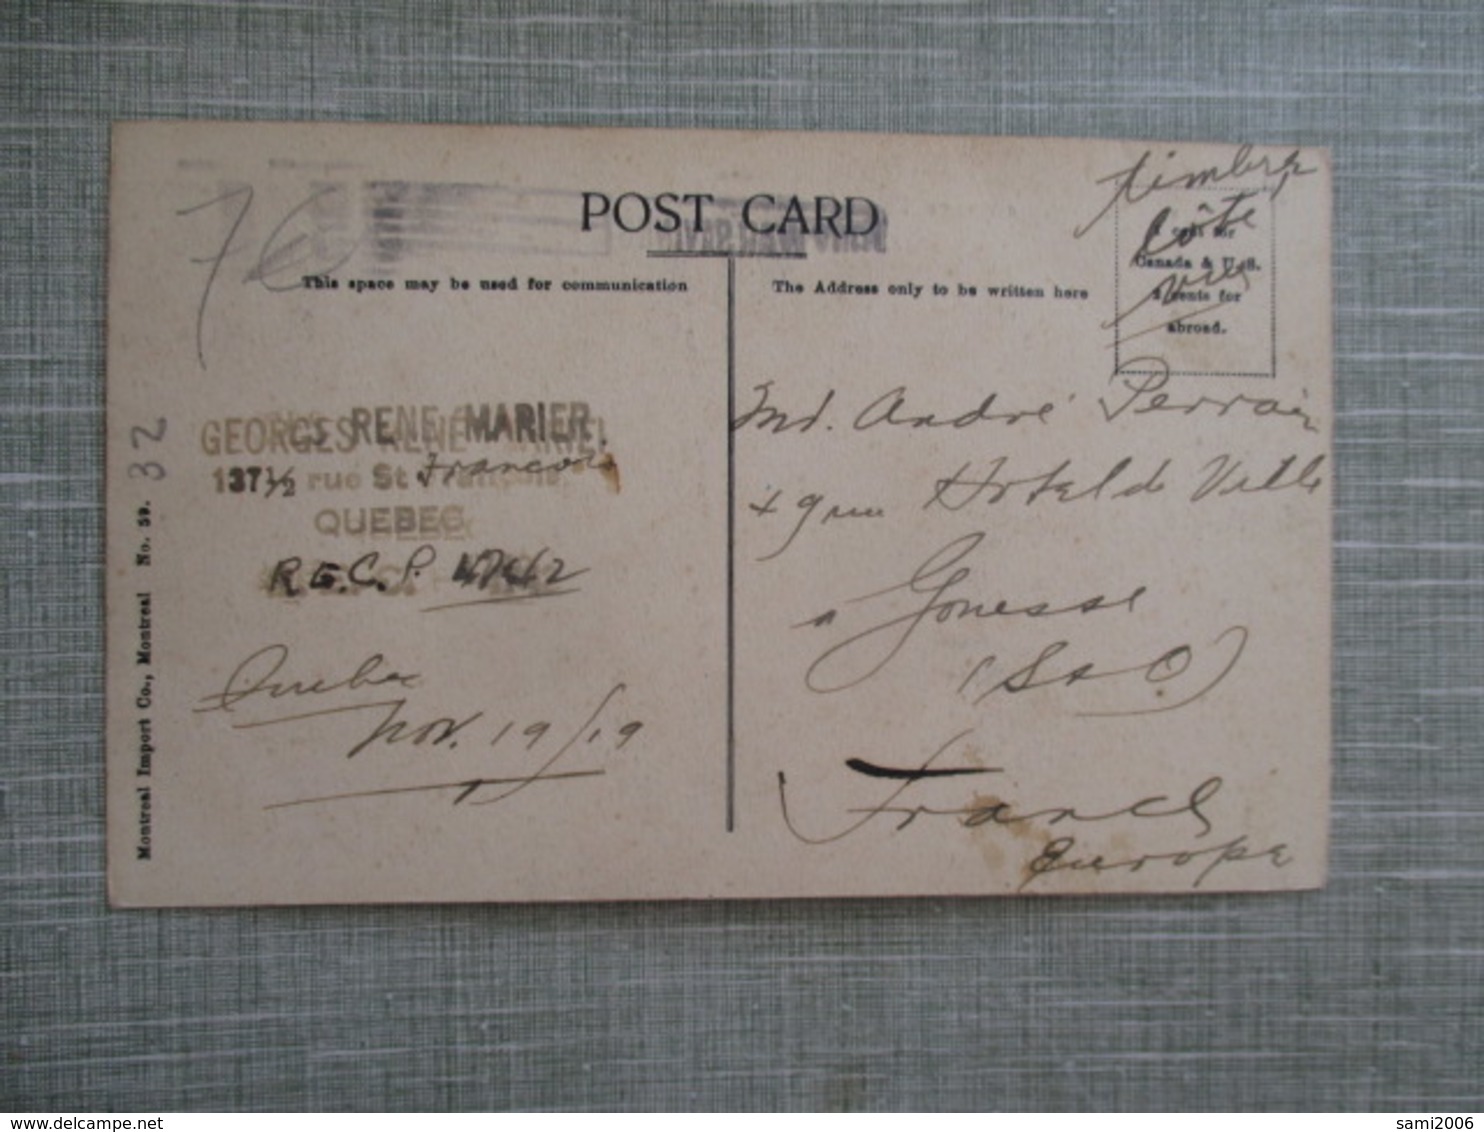 timbre
côté
vue
POST CARD
1 cent for
Canada & U.S.
2 cents for
abroad.
7
This space may be used for communication
The Address only to be written here
GEORGES RENE MARIER.
137½ rue St François
QUEBEC
R.E.C.P.
Quebec
Nov. 19/19
Md. André Perrain
Hotel de Ville
a Gonesse
(S & O)
France
Europe
Montreal Import Co., Montreal No. 59.
32
sami2006